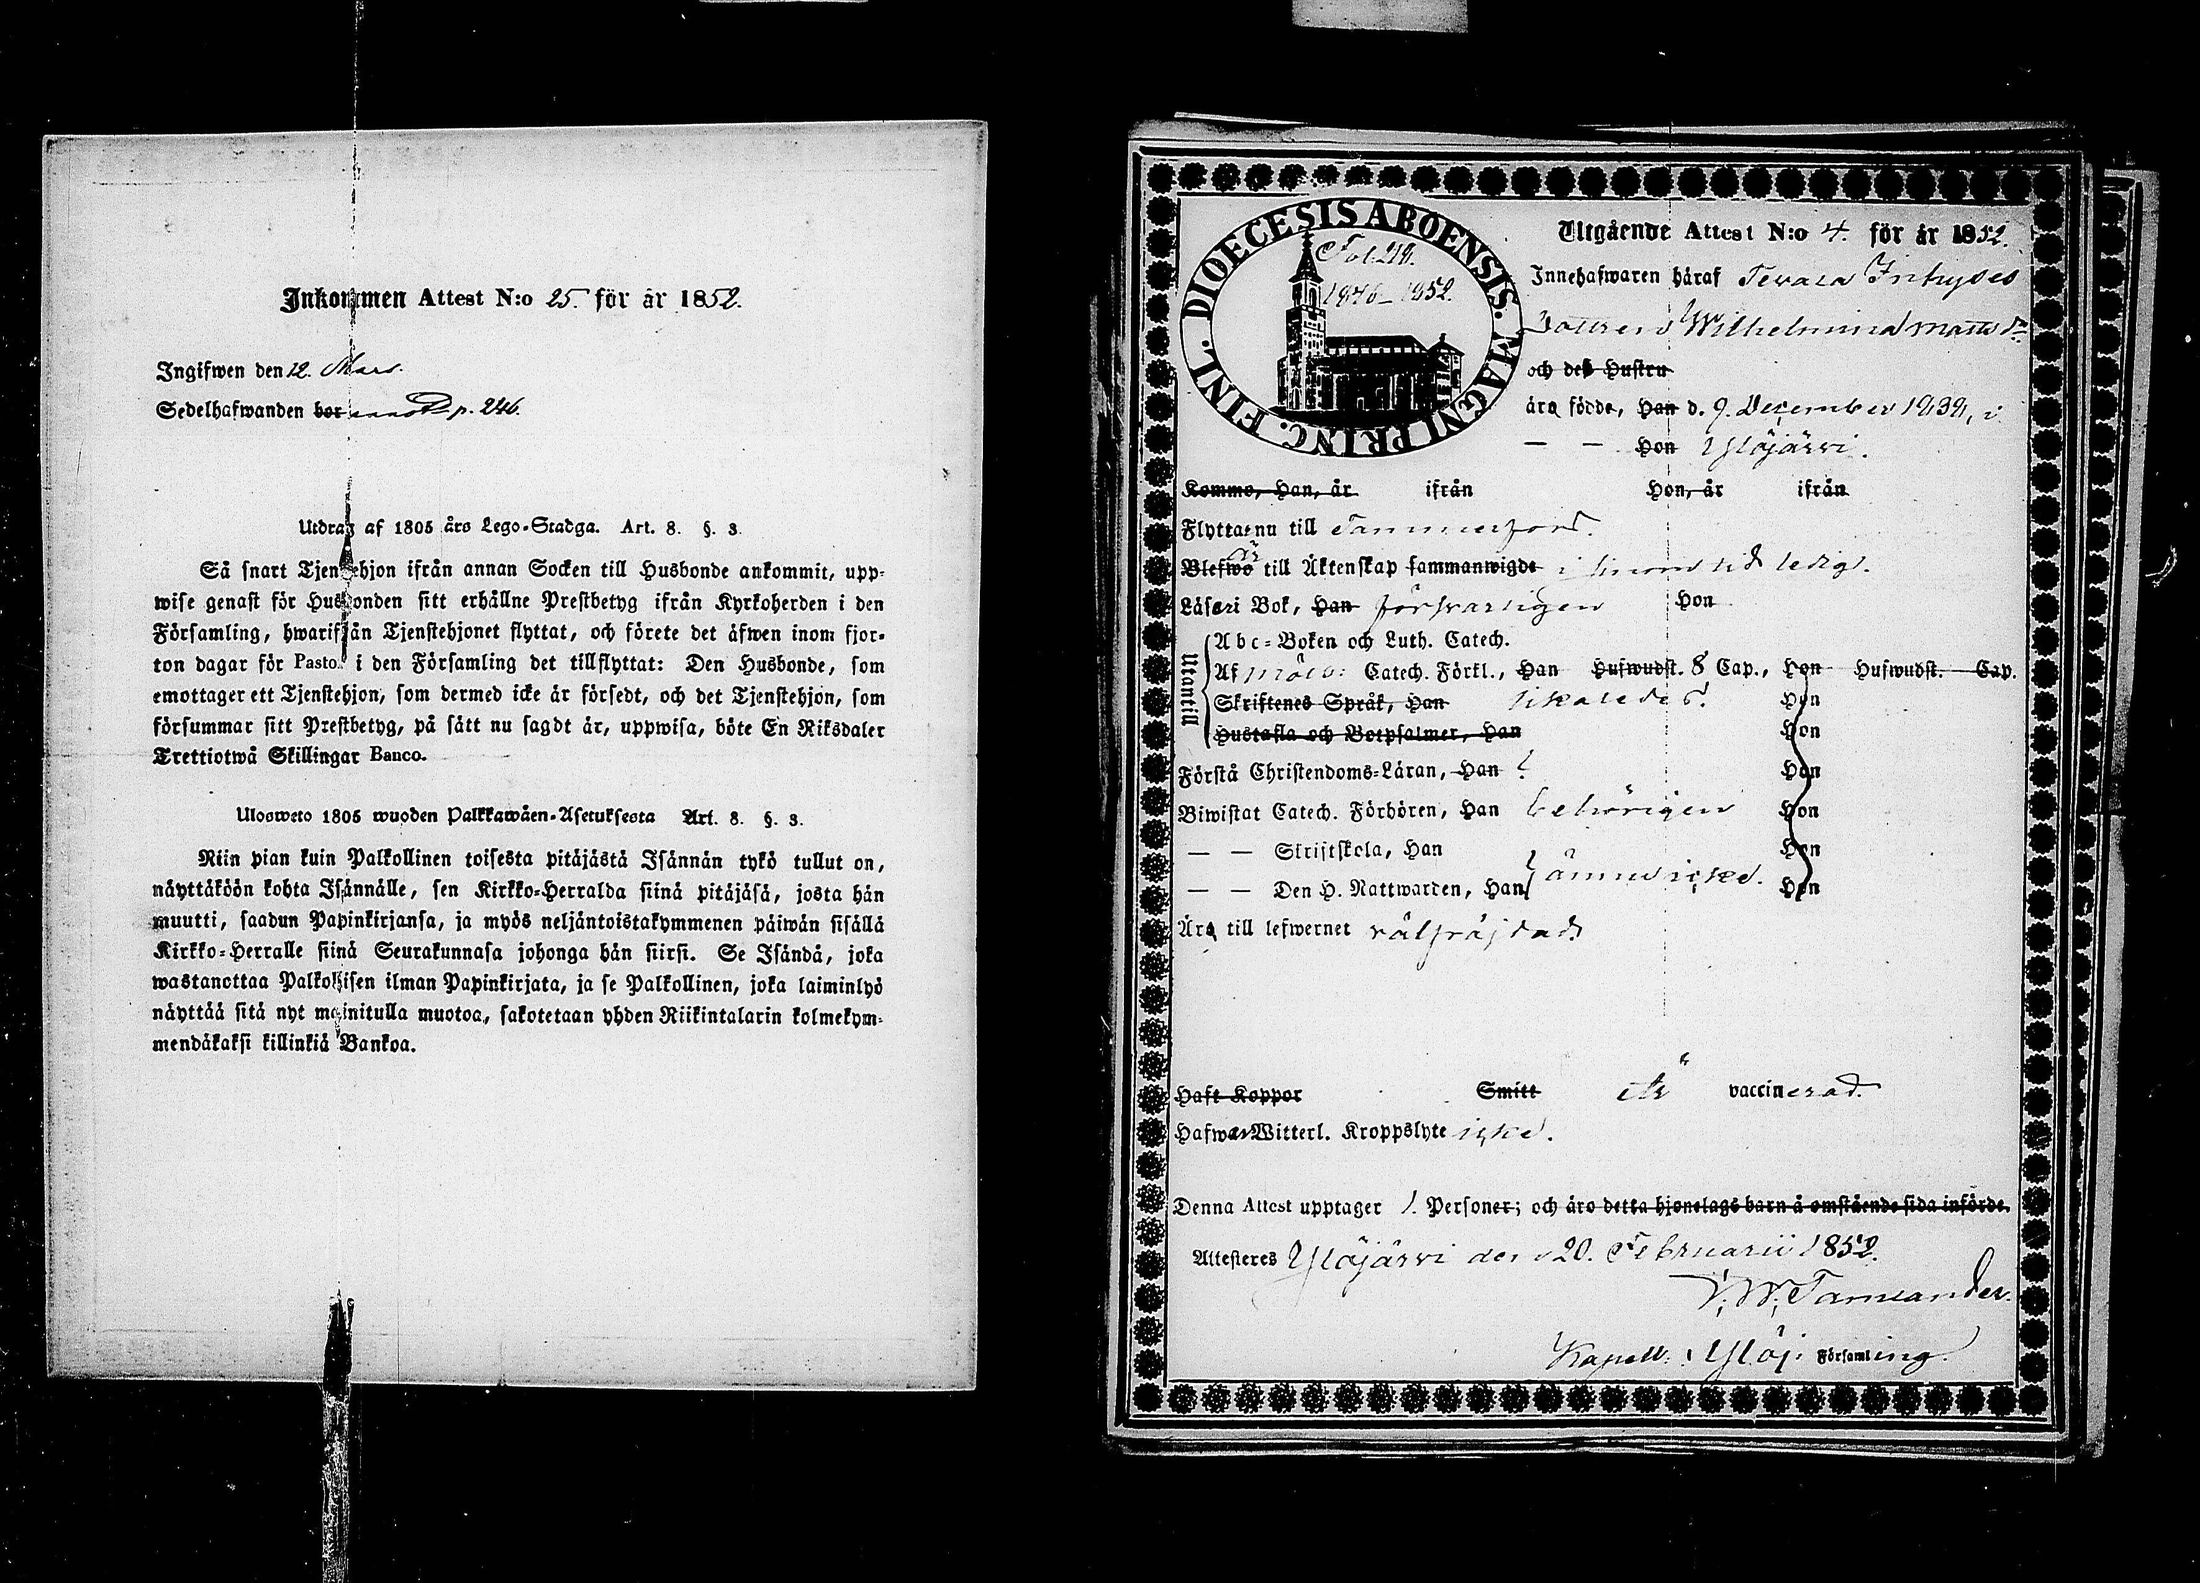 Inkommen Attest N:o 25. för år 1852.
Ingifwen den 12. Mars.
Sedelhafwanden bor annot. p. 246.
Utdrag af 1805 års Lego-Stadga. Art. 8. §. 3.
Så snart Tjenstehjon ifrån annan Socken till Husbonde ankommit, upp-
wise genast för Husbonden sitt erhållne Prestbetyg ifrån Kyrkoherden i den
Församling, hwarifrån Tjenstehjonet flyttat, och förete det äfwen inom fjor-
ton dagar för Pastor i den Församling det tillflyttat: Den Husbonde, som
emottager ett Tjenstehjon, som dermed icke är försedt, och det Tjenstehjon, som
försummar sitt Prestbetyg, på sätt nu sagdt är, uppwisa, böte En Riksdaler
Trettiotwå Skillingar Banco.
Ulosweto 1805 wuoden Palkkawäen-Asetuksesta Art. 8. §. 3.
Niin pian kuin Palkollinen toisesta pitäjästä Isännän tykö tullut on,
näyttäköön kohta Isännälle, sen Kirkko-Herralda siinä pitäjäsä, josta hän
muutti, saadun Papinkirjansa, ja myös neljäntoistakymmenen päiwän sisällä
Kirkko-Herralle siinä Seurakunnasa johonga hän siirsi. Se Isändä, joka
wastanottaa Palkollisen ilman Papinkirjata, ja se Palkollinen, joka laiminlyö
näyttää sitä nyt mainitulla muotoa, sakotetaan yhden Riikintalarin kolmekym-
mendäkaksi killinkiä Bankoa.
DIOECESIS ABOENSIS. MAGNI PRINC. FINL.
Fol. 219.
1846–1852.
Utgående Attest N:o 4. för år 1852.
Innehafwaren häraf
Wilhelmina Mattsdr
och deß Hustru
äro födde, Han d. 9. December 1839, i
— — Hon Ylöjärvi.
Kommo, Han, år ifrån Hon, år ifrån
Flytta nu till Tammerfors.
Blefwo är till Äktenskap sammanwigde i sinom tid ledig.
Läser i Bok, Han försvarligen Hon
Utantill
Abc-Boken och Luth. Catech.
Af Catech. Förkl., Han Hufwudst. 8 Cap., Hon Hufwudst. Cap.
Skriftenes Språk, Han likaledes. Hon
Hustafla och Botpsalmer, Han Hon
Förstå Christendoms-Läran, Han Hon
Biwistat Catech. Förhören, Han behörigen Hon
— — Skriftskola, Han Hon
— — Den H. Nattwarden, Han ännu icke. Hon
Äro till lefwernet välfräjdad.
Haft Koppor Smitt är vaccinerad.
Hafwa Witterl. Kroppslyte icke.
Denna Attest upptager 1. Personer; och äro detta hjonelags barn å omstående sida införde.
Attesteres Ylöjärvi den 20. Februarii 1852.
Kapell. i Ylöj. Församling.